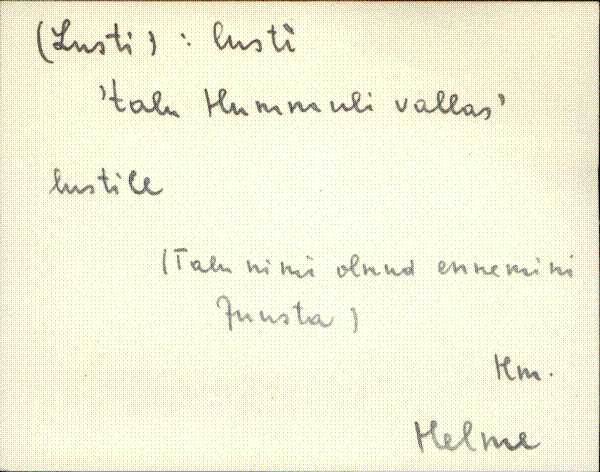 (Lusti) : lusti
'talu Hummuli vallas'
lustile
(Talu nimi olnud ennemini
Juusta)
Hm.
Helme